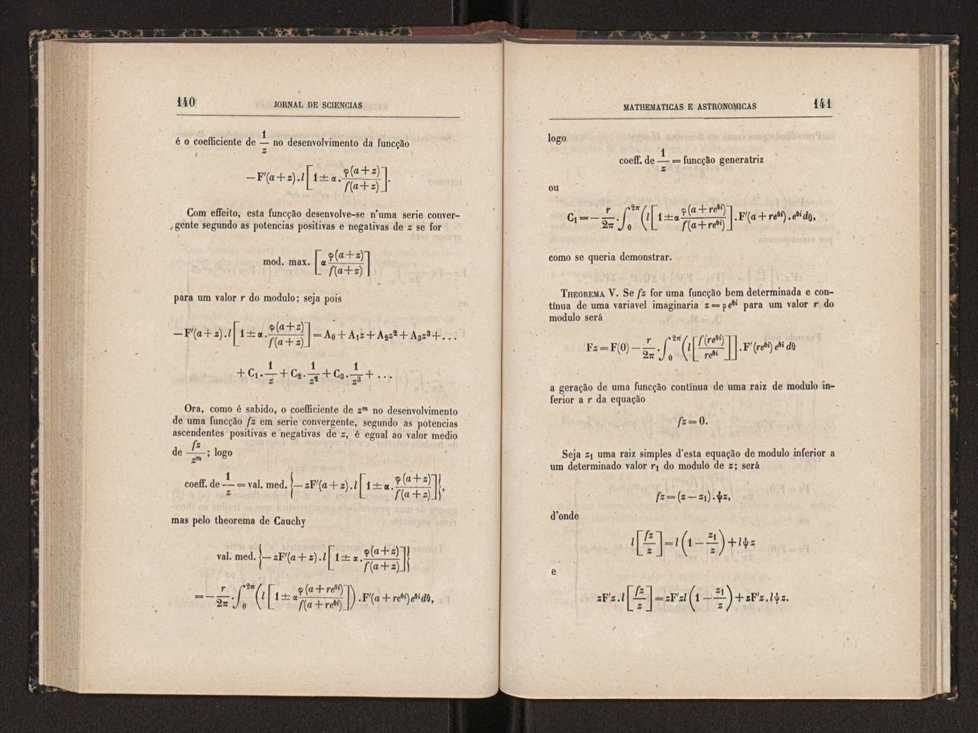 140 JORNAL DE SCIENCIAS
é o coefficiente de 1/z no desenvolvimento da funcção
— F'(a + z) . l [1 ± α . φ(a + z)/f(a + z)].
Com effeito, esta funcção desenvolve-se n'uma serie conver-
gente segundo as potencias positivas e negativas de z se for
mod. max. [α φ(a + z)/f(a + z)]
para um valor r do modulo; seja pois
— F'(a + z) . l [1 ± α . φ(a + z)/f(a + z)] = A₀ + A₁z + A₂z² + A₃z³ + . . .
+ C₁ . 1/z + C₂ . 1/z² + C₃ . 1/z³ + . . .
Ora, como é sabido, o coefficiente de zᵐ no desenvolvimento
de uma funcção fz em serie convergente, segundo as potencias
ascendentes positivas e negativas de z, é egual ao valor medio
de fz/zᵐ ; logo
coeff. de 1/z = val. med. {— zF'(a + z) . l [1 ± α . φ(a + z)/f(a + z)]},
mas pelo theorema de Cauchy
val. med. {— zF'(a + z) . l [1 ± α . φ(a + z)/f(a + z)]}
= — r/2π . ∫₀²π (l [1 ± α φ(a + reθi)/f(a + reθi)]) . F'(a + reθi)eθidθ,
MATHEMATICAS E ASTRONOMICAS 141
logo
coeff. de 1/z = funcção generatriz
ou
C₁ = — r/2π . ∫₀²π (l [1 ± α φ(a + reθi)/f(a + reθi)] . F'(a + reθi) . eθidθ,
como se queria demonstrar.
THEOREMA V. Se fz for uma funcção bem determinada e con-
tínua de uma variavel imaginaria z = ρeθi para um valor r do
modulo será
Fz = F(0) — r/2π . ∫₀²π (l [f(reθi)/reθi]] . F'(reθi) eθi dθ
a geração de uma funcção continua de uma raiz de modulo in-
ferior a r da equação
fz = 0.
Seja z₁ uma raiz simples d'esta equação de modulo inferior a
um determinado valor r₁ do modulo de z; será
fz = (z — z₁) . ψz,
d'onde
l [fz/z] = l (1 — z₁/z) + lψz
e
zF'z . l [fz/z] = zF'zl (1 — z₁/z) + zF'z . lψz.